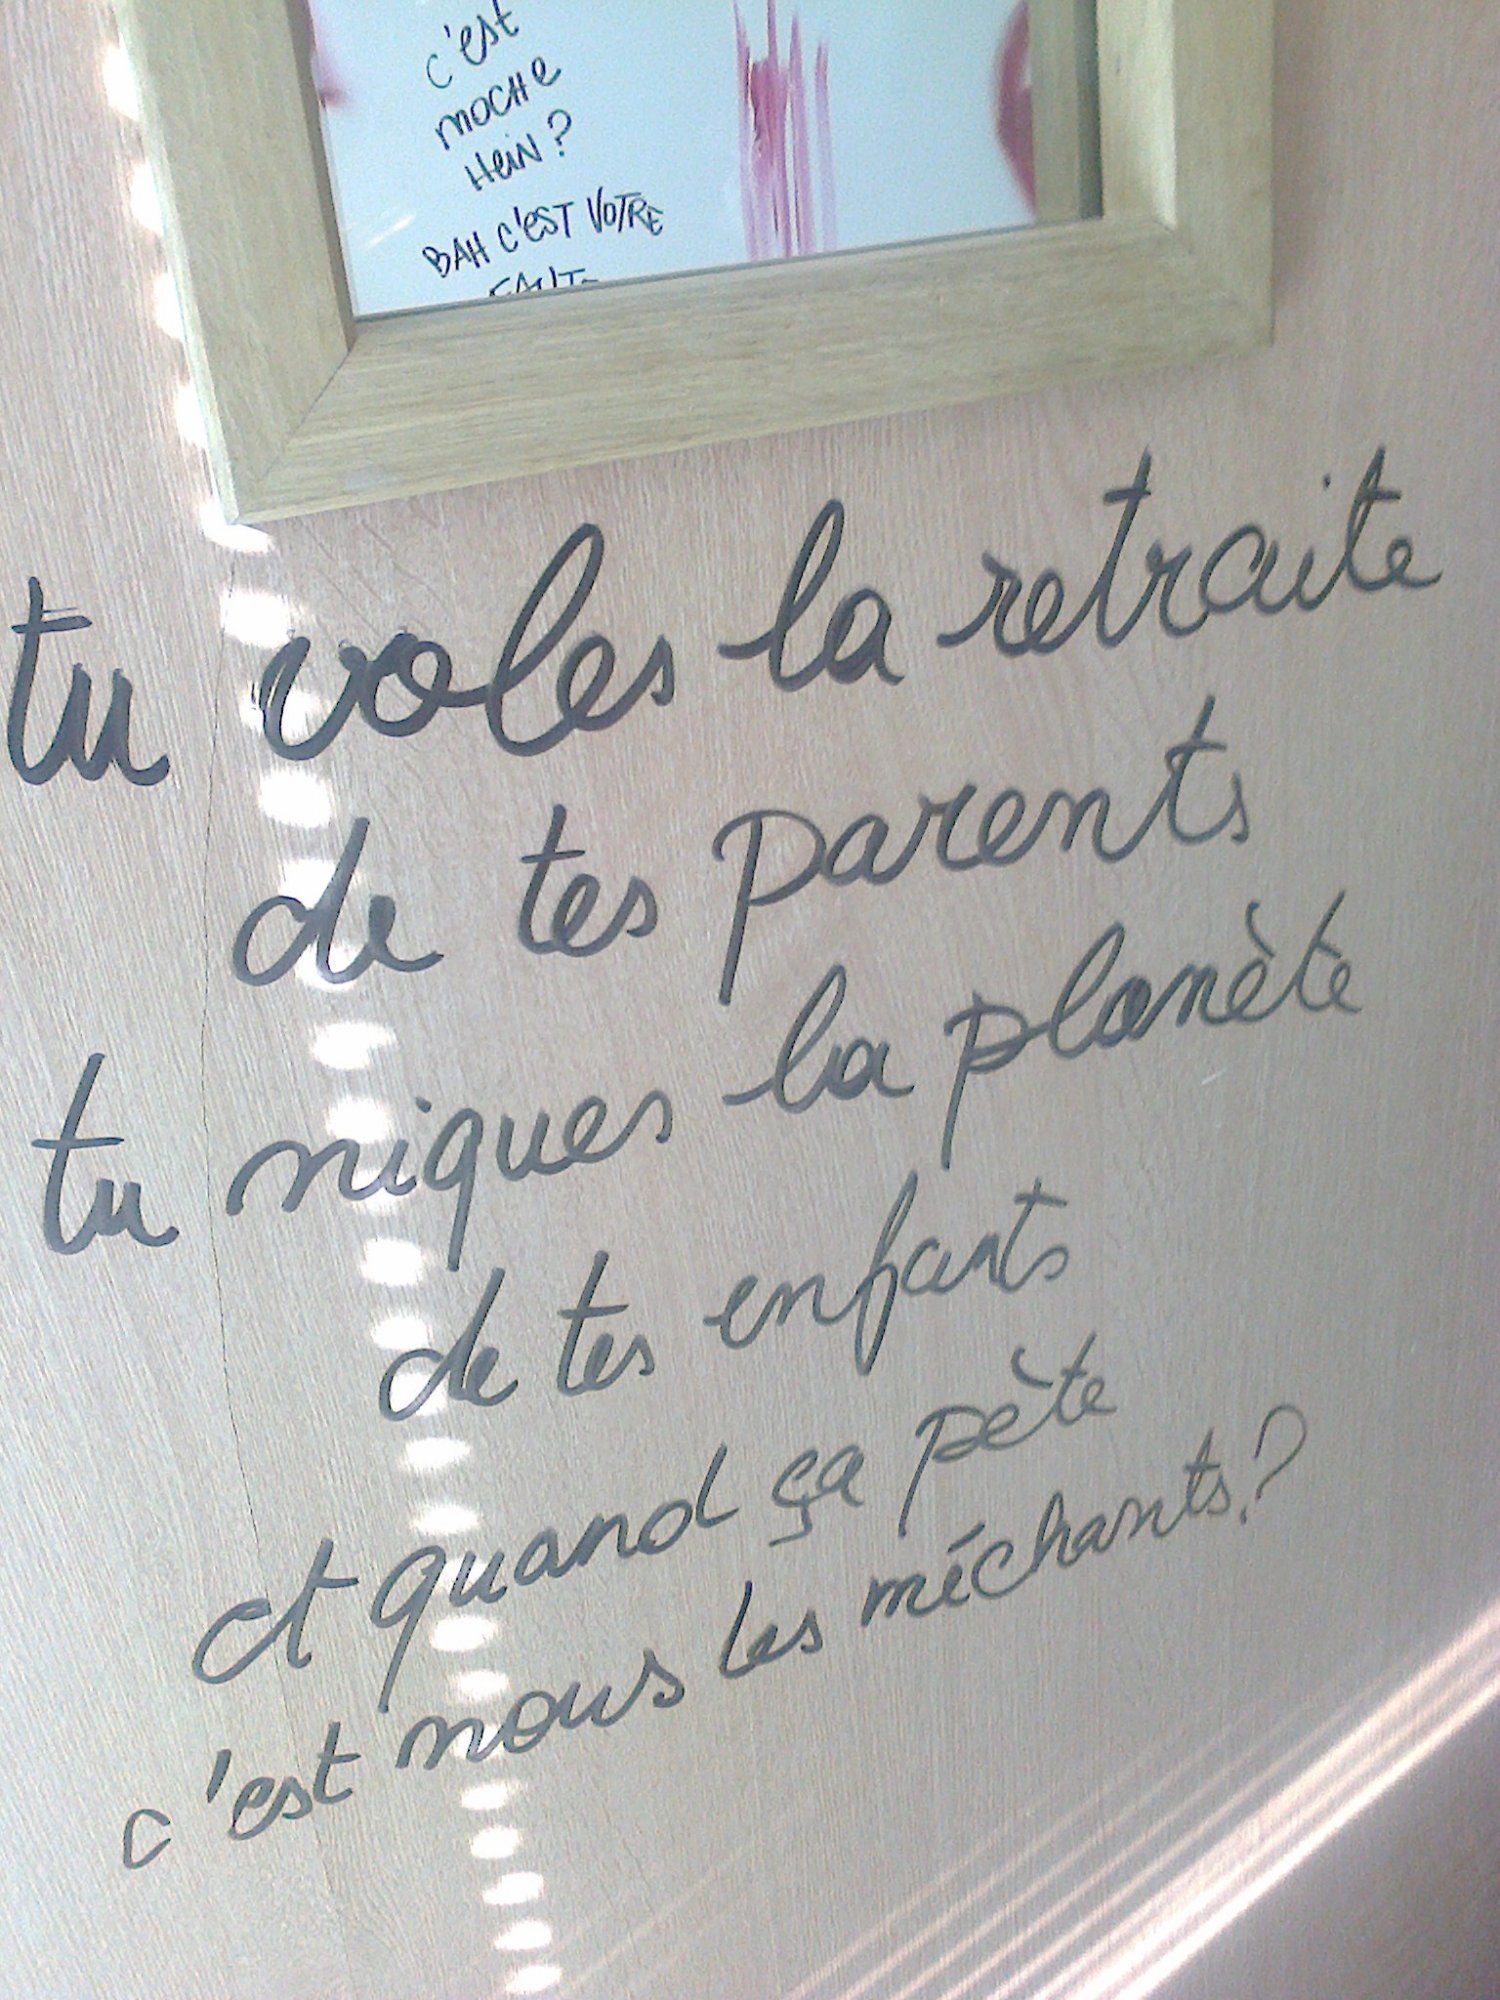 c'est
moche
Hein ?
BAH C'EST VOTRE
FAUTE
tu voles la retraite
de tes parents
tu niques la planète
de tes enfants
et quand ça pète
c'est nous les méchants.?